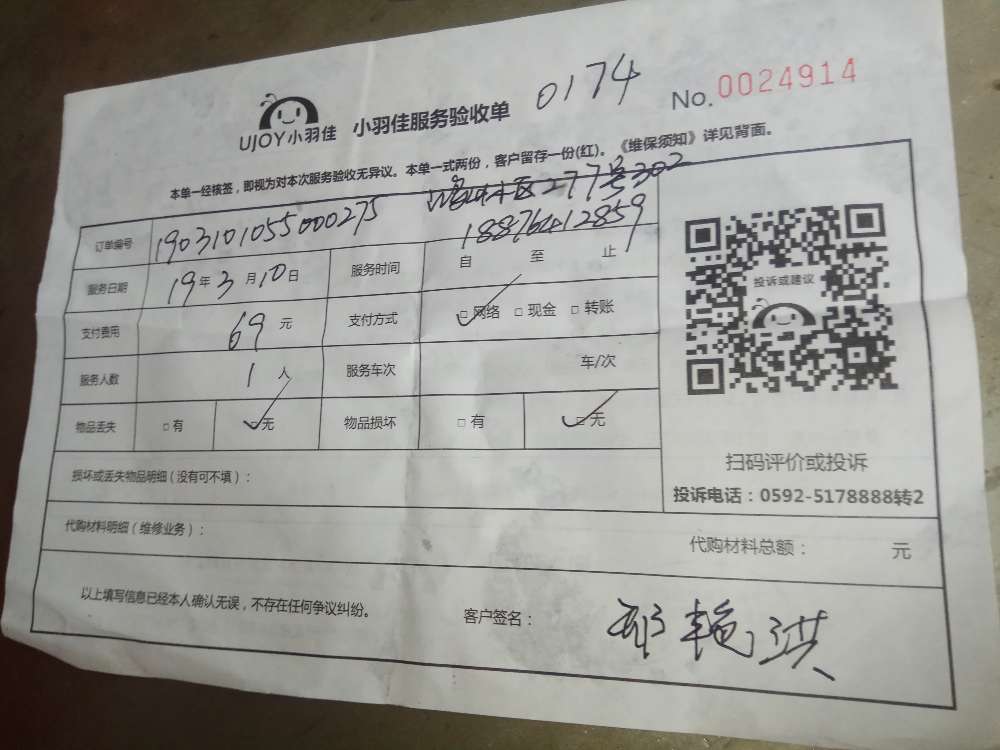 UJOY小羽佳 小羽佳服务验收单 0174 No. 0024914
本单一经核签，即视为对本次服务验收无异议。本单一式两份，客户留存一份(红)。《维保须知》详见背面。
277号302
订单编号 1903101055000275
18876412859
服务日期 19年3月10日 服务时间 自 至 止
支付费用 69元 支付方式 □网络 □现金 □转账
服务人数 1人 服务车次 车/次
物品丢失 □有 □无 物品损坏 □有 □无
投诉或建议
扫码评价或投诉
投诉电话：0592-5178888转2
损坏或丢失物品明细（没有可不填）：
代购材料明细（维修业务）： 代购材料总额： 元
以上填写信息已经本人确认无误，不存在任何争议纠纷。 客户签名： 艳洪